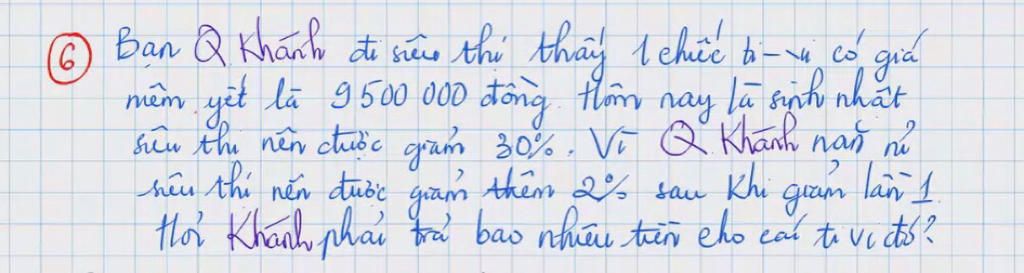 6 Bạn Q Khánh đi siêu thị thấy 1 chiếc ti-vi có giá
niêm yết là 9500 000 đồng. Hôm nay là sinh nhật
siêu thị nên được giảm 30%. Vì Q Khánh năn nỉ
siêu thị nên được giảm thêm 2% sau khi giảm lần 1
Hỏi Khánh phải trả bao nhiêu tiền cho cái ti vi đó?